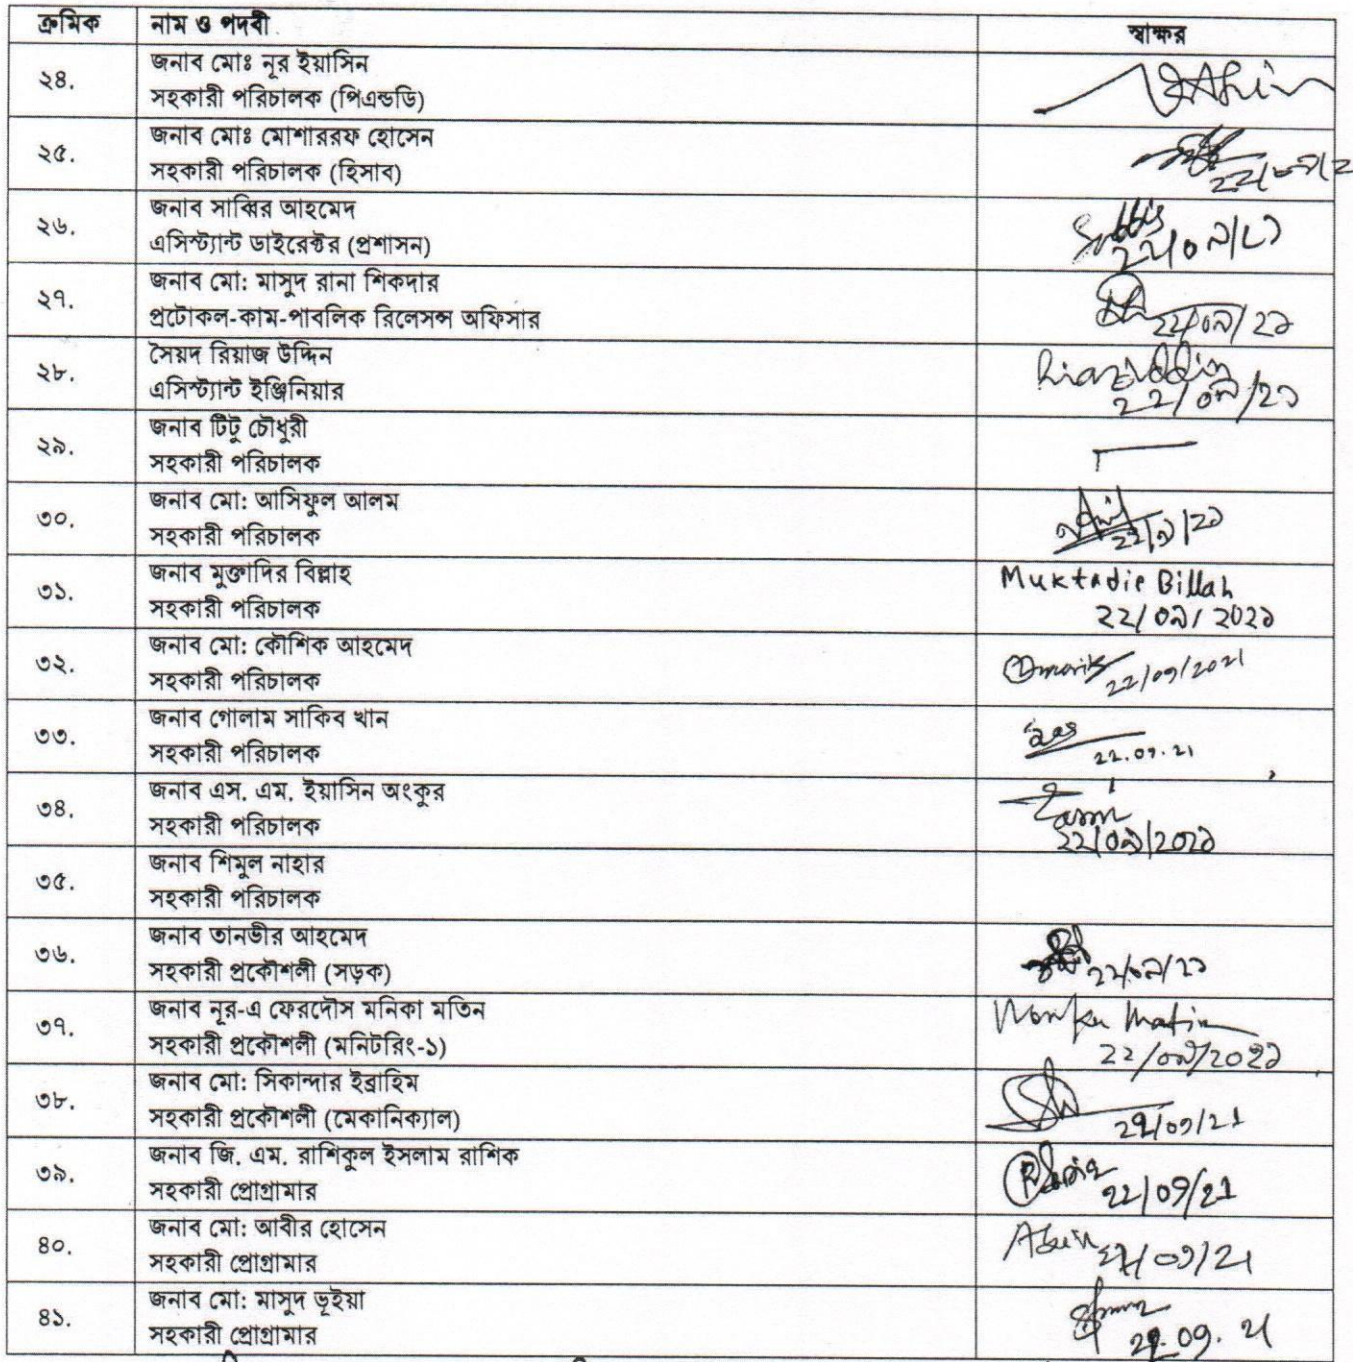 ক্রমিক নাম ও পদবী স্বাক্ষর
২৪. জনাব মোঃ নূর ইয়াসিন
সহকারী পরিচালক (পিএন্ডডি)
২৫. জনাব মোঃ মোশাররফ হোসেন
সহকারী পরিচালক (হিসাব)
২৬. জনাব সাব্বির আহমেদ
এসিস্ট্যান্ট ডাইরেক্টর (প্রশাসন)
২৭. জনাব মো: মাসুদ রানা শিকদার
প্রটোকল-কাম-পাবলিক রিলেসন্স অফিসার
২২/০৯/২১
২৮. সৈয়দ রিয়াজ উদ্দিন
এসিস্ট্যান্ট ইঞ্জিনিয়ার
২২/০৯/২১
২৯. জনাব টিটু চৌধুরী
সহকারী পরিচালক
৩০. জনাব মো: আসিফুল আলম
সহকারী পরিচালক
২২/৯/২১
৩১. জনাব মুক্তাদির বিল্লাহ Muktadir Billah
সহকারী পরিচালক ২২/০৯/২০২১
৩২. জনাব মো: কৌশিক আহমেদ
সহকারী পরিচালক 22/09/2021
৩৩. জনাব গোলাম সাকিব খান
সহকারী পরিচালক 22.09.21
৩৪. জনাব এস. এম. ইয়াসিন অংকুর
সহকারী পরিচালক ২২/০৯/২০২১
৩৫. জনাব শিমুল নাহার
সহকারী পরিচালক
৩৬. জনাব তানভীর আহমেদ
সহকারী প্রকৌশলী (সড়ক) ২২/০৯/২১
৩৭. জনাব নূর-এ ফেরদৌস মনিকা মতিন Monika Matin
সহকারী প্রকৌশলী (মনিটরিং-১) ২২/০৯/২০২১
৩৮. জনাব মো: সিকান্দার ইব্রাহিম
সহকারী প্রকৌশলী (মেকানিক্যাল) 22/09/21
৩৯. জনাব জি. এম. রাশিকুল ইসলাম রাশিক
সহকারী প্রোগ্রামার 22/09/21
৪০. জনাব মো: আবীর হোসেন Abir
সহকারী প্রোগ্রামার 22/09/21
৪১. জনাব মো: মাসুদ ভূইয়া
সহকারী প্রোগ্রামার 22.09.21